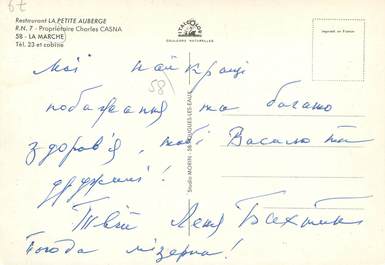 67
Restaurant LA PETITE AUBERGE
R.N. 7 - Propriétaire Charles CASNA
58 - LA MARCHE
Tél. 23 et cabine
ITALCOLOR
COULEURS NATURELLES
Imprimé en France
Studio MORIN - 58 POUGUES-LES-EAUX
58
Мої най кращі
побажання та багато
здоров'я, тобі Василю та
дружині!
Твій Леня Бахтин
Погода мізерна!